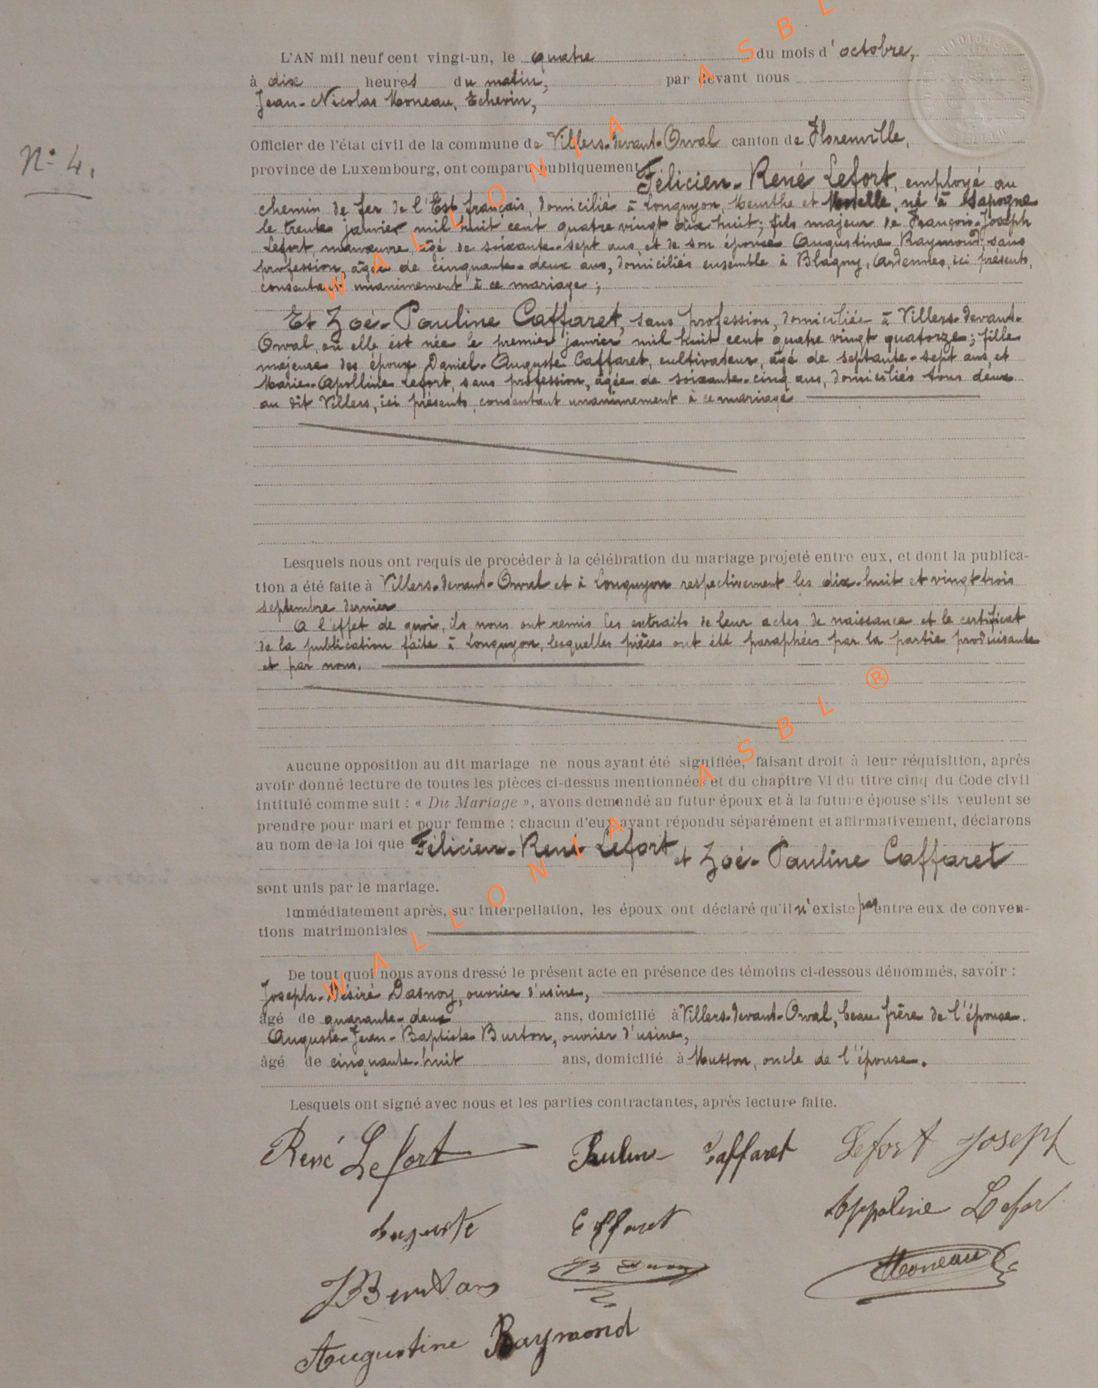 L'AN mil neuf cent vingt-un, le quatre du mois d'octobre,
à dix heures du matin, par devant nous
Jean-Nicolas Moneau, Echevin,
Officier de l'état civil de la commune de Villers-devant-Orval canton de Florenville,
N° 4.
province de Luxembourg, ont comparu publiquement Félicien-René Lefort, employé au
chemin de fer de l'Est français, domicilié à Longuyon, Meurthe et Moselle, né à Sapogne
le trente janvier mil huit cent quatre vingt dix huit; fils majeur de François-Joseph
Lefort, manœuvre, âgé de soixante-sept ans, et de son épouse Augustine Raymond, sans
profession, âgée de cinquante-deux ans, domiciliés ensemble à Blagny, Ardennes, ici présents,
consentant unanimement à ce mariage;
Et Zoé-Pauline Caffaret, sans profession, domiciliée à Villers-devant-
Orval, où elle est née le premier janvier mil huit cent quatre vingt quatorze; fille
majeure des époux Daniel-Auguste Caffaret, cultivateur, âgé de septante-sept ans, et
Marie-Apolline Lefort, sans profession, âgée de soixante-cinq ans, domiciliés tous deux
au dit Villers, ici présents, consentant unanimement à ce mariage
Lesquels nous ont requis de procéder à la célébration du mariage projeté entre eux, et dont la publica-
tion a été faite à Villers-devant-Orval et à Longuyon respectivement les dix-huit et vingt trois
septembre dernier
A l'effet de quoi, ils nous ont remis les extraits de leur actes de naissance et le certificat
de la publication faite à Longuyon, lesquelles pièces ont été paraphées par la partie produisante
et par nous.
Aucune opposition au dit mariage ne nous ayant été signifiée, faisant droit à leur réquisition, après
avoir donné lecture de toutes les pièces ci-dessus mentionnées et du chapitre VI du titre cinq du Code civil
intitulé comme suit : « Du Mariage », avons demandé au futur époux et à la future épouse s'ils veulent se
prendre pour mari et pour femme ; chacun d'eux ayant répondu séparément et affirmativement, déclarons
au nom de la loi que Félicien-René Lefort et Zoé-Pauline Caffaret
sont unis par le mariage.
Immédiatement après, sur interpellation, les époux ont déclaré qu'il n'existe pas entre eux de conven-
tions matrimoniales
De tout quoi nous avons dressé le présent acte en présence des témoins ci-dessous dénommés, savoir :
Joseph-Désiré Dasnoy, ouvrier d'usine,
âgé de quarante-deux ans, domicilié à Villers-devant-Orval, beau frère de l'épouse.
Auguste-Jean-Baptiste Burton, ouvrier d'usine,
âgé de cinquante-huit ans, domicilié à Musson, oncle de l'épouse.
Lesquels ont signé avec nous et les parties contractantes, après lecture faite.
René Lefort Pauline Caffaret Lefort Joseph
Auguste Caffaret Appoline Lefort
JBBurton Moneau
Augustine Raymond
WALLONIA ASBL
WALLONIA ASBL ®